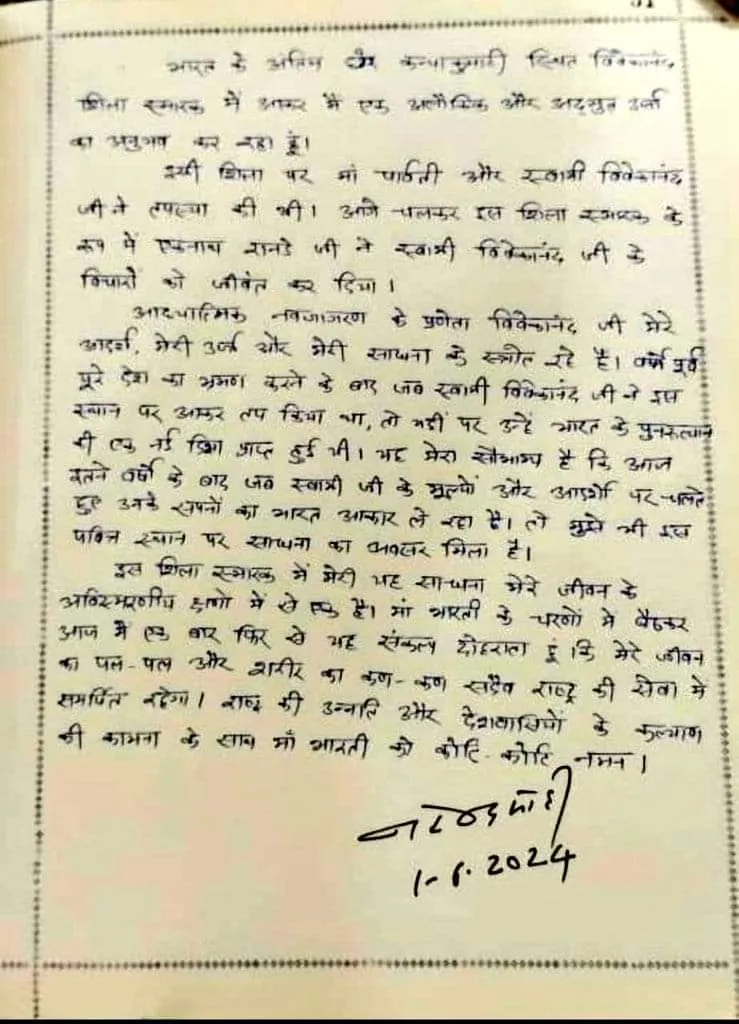 51
भारत के अंतिम छोर कन्याकुमारी स्थित विवेकानंद
शिला स्मारक में आकर मैं एक अलौकिक और अद्भुत उर्जा
का अनुभव कर रहा हूं।
इसी शिला पर मां पार्वती और स्वामी विवेकानंद
जी ने तपस्या की थी। आगे चलकर इस शिला स्मारक के
रूप में एकनाथ रानडे जी ने स्वामी विवेकानंद जी के
विचारों को जीवंत कर दिया।
आध्यात्मिक नवजागरण के प्रणेता विवेकानंद जी मेरे
आदर्श, मेरी उर्जा और मेरी साधना के स्त्रोत रहे है। वर्षो पूर्व
पूरे देश का भ्रमण करने के बाद जब स्वामी विवेकानंद जी ने इस
स्थान पर आकर तप किया था, तो यहीं पर उन्हें भारत के पुनरुत्थान
की एक नई दिशा प्राप्त हुई थी। यह मेरा सौभाग्य है कि आज
इतने वर्षो के बाद जब स्वामी जी के मूल्यों और आदर्शो पर चलते
हुए उनके सपनों का भारत आकार ले रहा है। तो मुझे भी इस
पवित्र स्थान पर साधना का अवसर मिला है।
इस शिला स्मारक में मेरी यह साधना मेरे जीवन के
अविस्मरणीय क्षणो में से एक है। मां भारती के चरणों मे बैठकर
आज मैं एक बार फिर से यह संकल्प दोहराता हूं कि मेरे जीवन
का पल-पल और शरीर का कण-कण सदैव राष्ट्र की सेवा मे
समर्पित रहेगा। राष्ट्र की उन्नति और देशवासियों के कल्याण
की कामना के साथ मां भारती को कोटि-कोटि नमन।
नरेन्द्र मोदी
1-6.2024